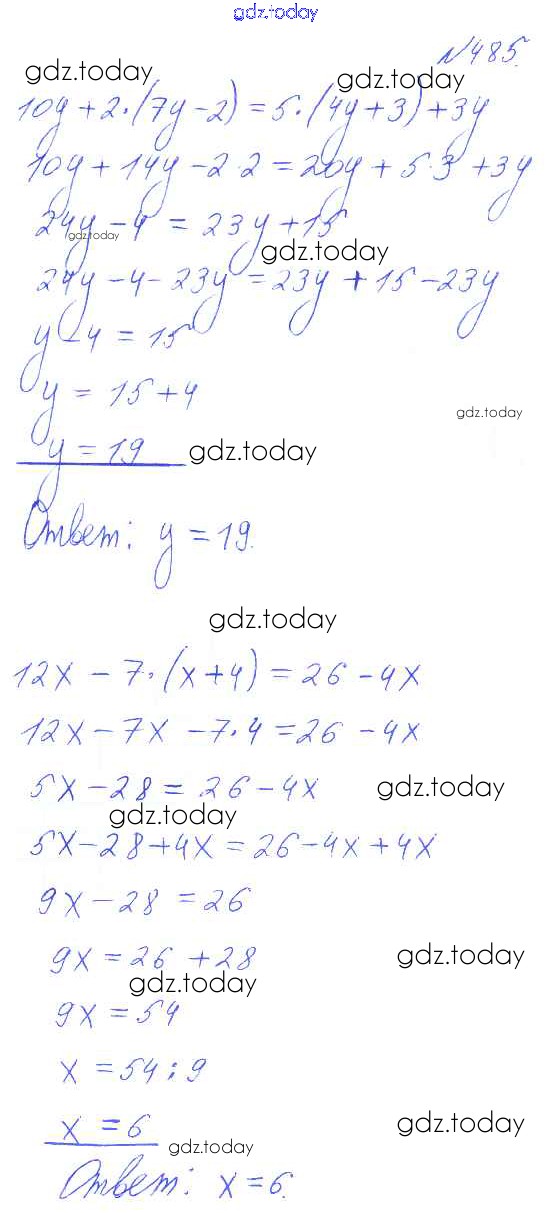 gdz.today
№485.
gdz.today gdz.today
10y + 2·(7y - 2) = 5·(4y + 3) + 3y
10y + 14y - 2·2 = 20y + 5·3 + 3y
24y - 4 = 23y + 15
gdz.today
gdz.today
24y - 4 - 23y = 23y + 15 - 23y
y - 4 = 15
y = 15 + 4
gdz.today
y = 19 gdz.today
Ответ: y = 19.
gdz.today
12x - 7·(x + 4) = 26 - 4x
12x - 7x - 7·4 = 26 - 4x
5x - 28 = 26 - 4x gdz.today
gdz.today
5x - 28 + 4x = 26 - 4x + 4x
9x - 28 = 26
9x = 26 + 28 gdz.today
gdz.today
9x = 54
x = 54 : 9
x = 6 gdz.today
gdz.today
Ответ: x = 6.